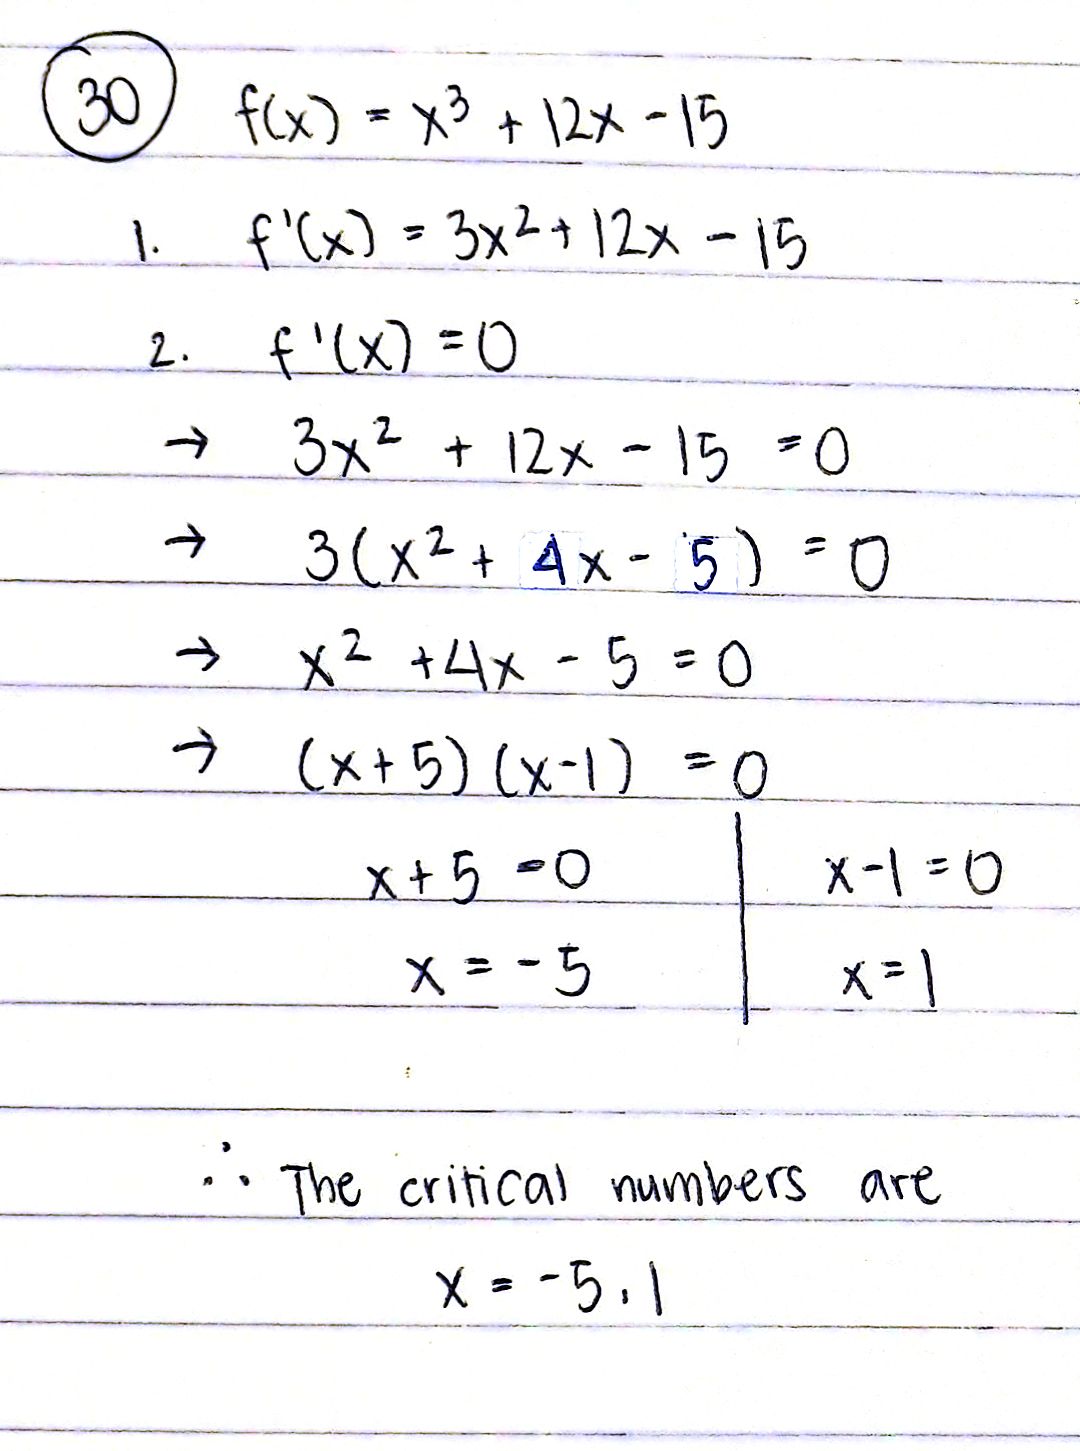 30 f(x) = x³ + 12x - 15
1. f'(x) = 3x² + 12x - 15
2. f'(x) = 0
→ 3x² + 12x - 15 = 0
→ 3(x² + 4x - 5) = 0
→ x² + 4x - 5 = 0
→ (x+5)(x-1) = 0
x+5 = 0 | x-1 = 0
x = -5 | x = 1
∴ The critical numbers are
x = -5, 1